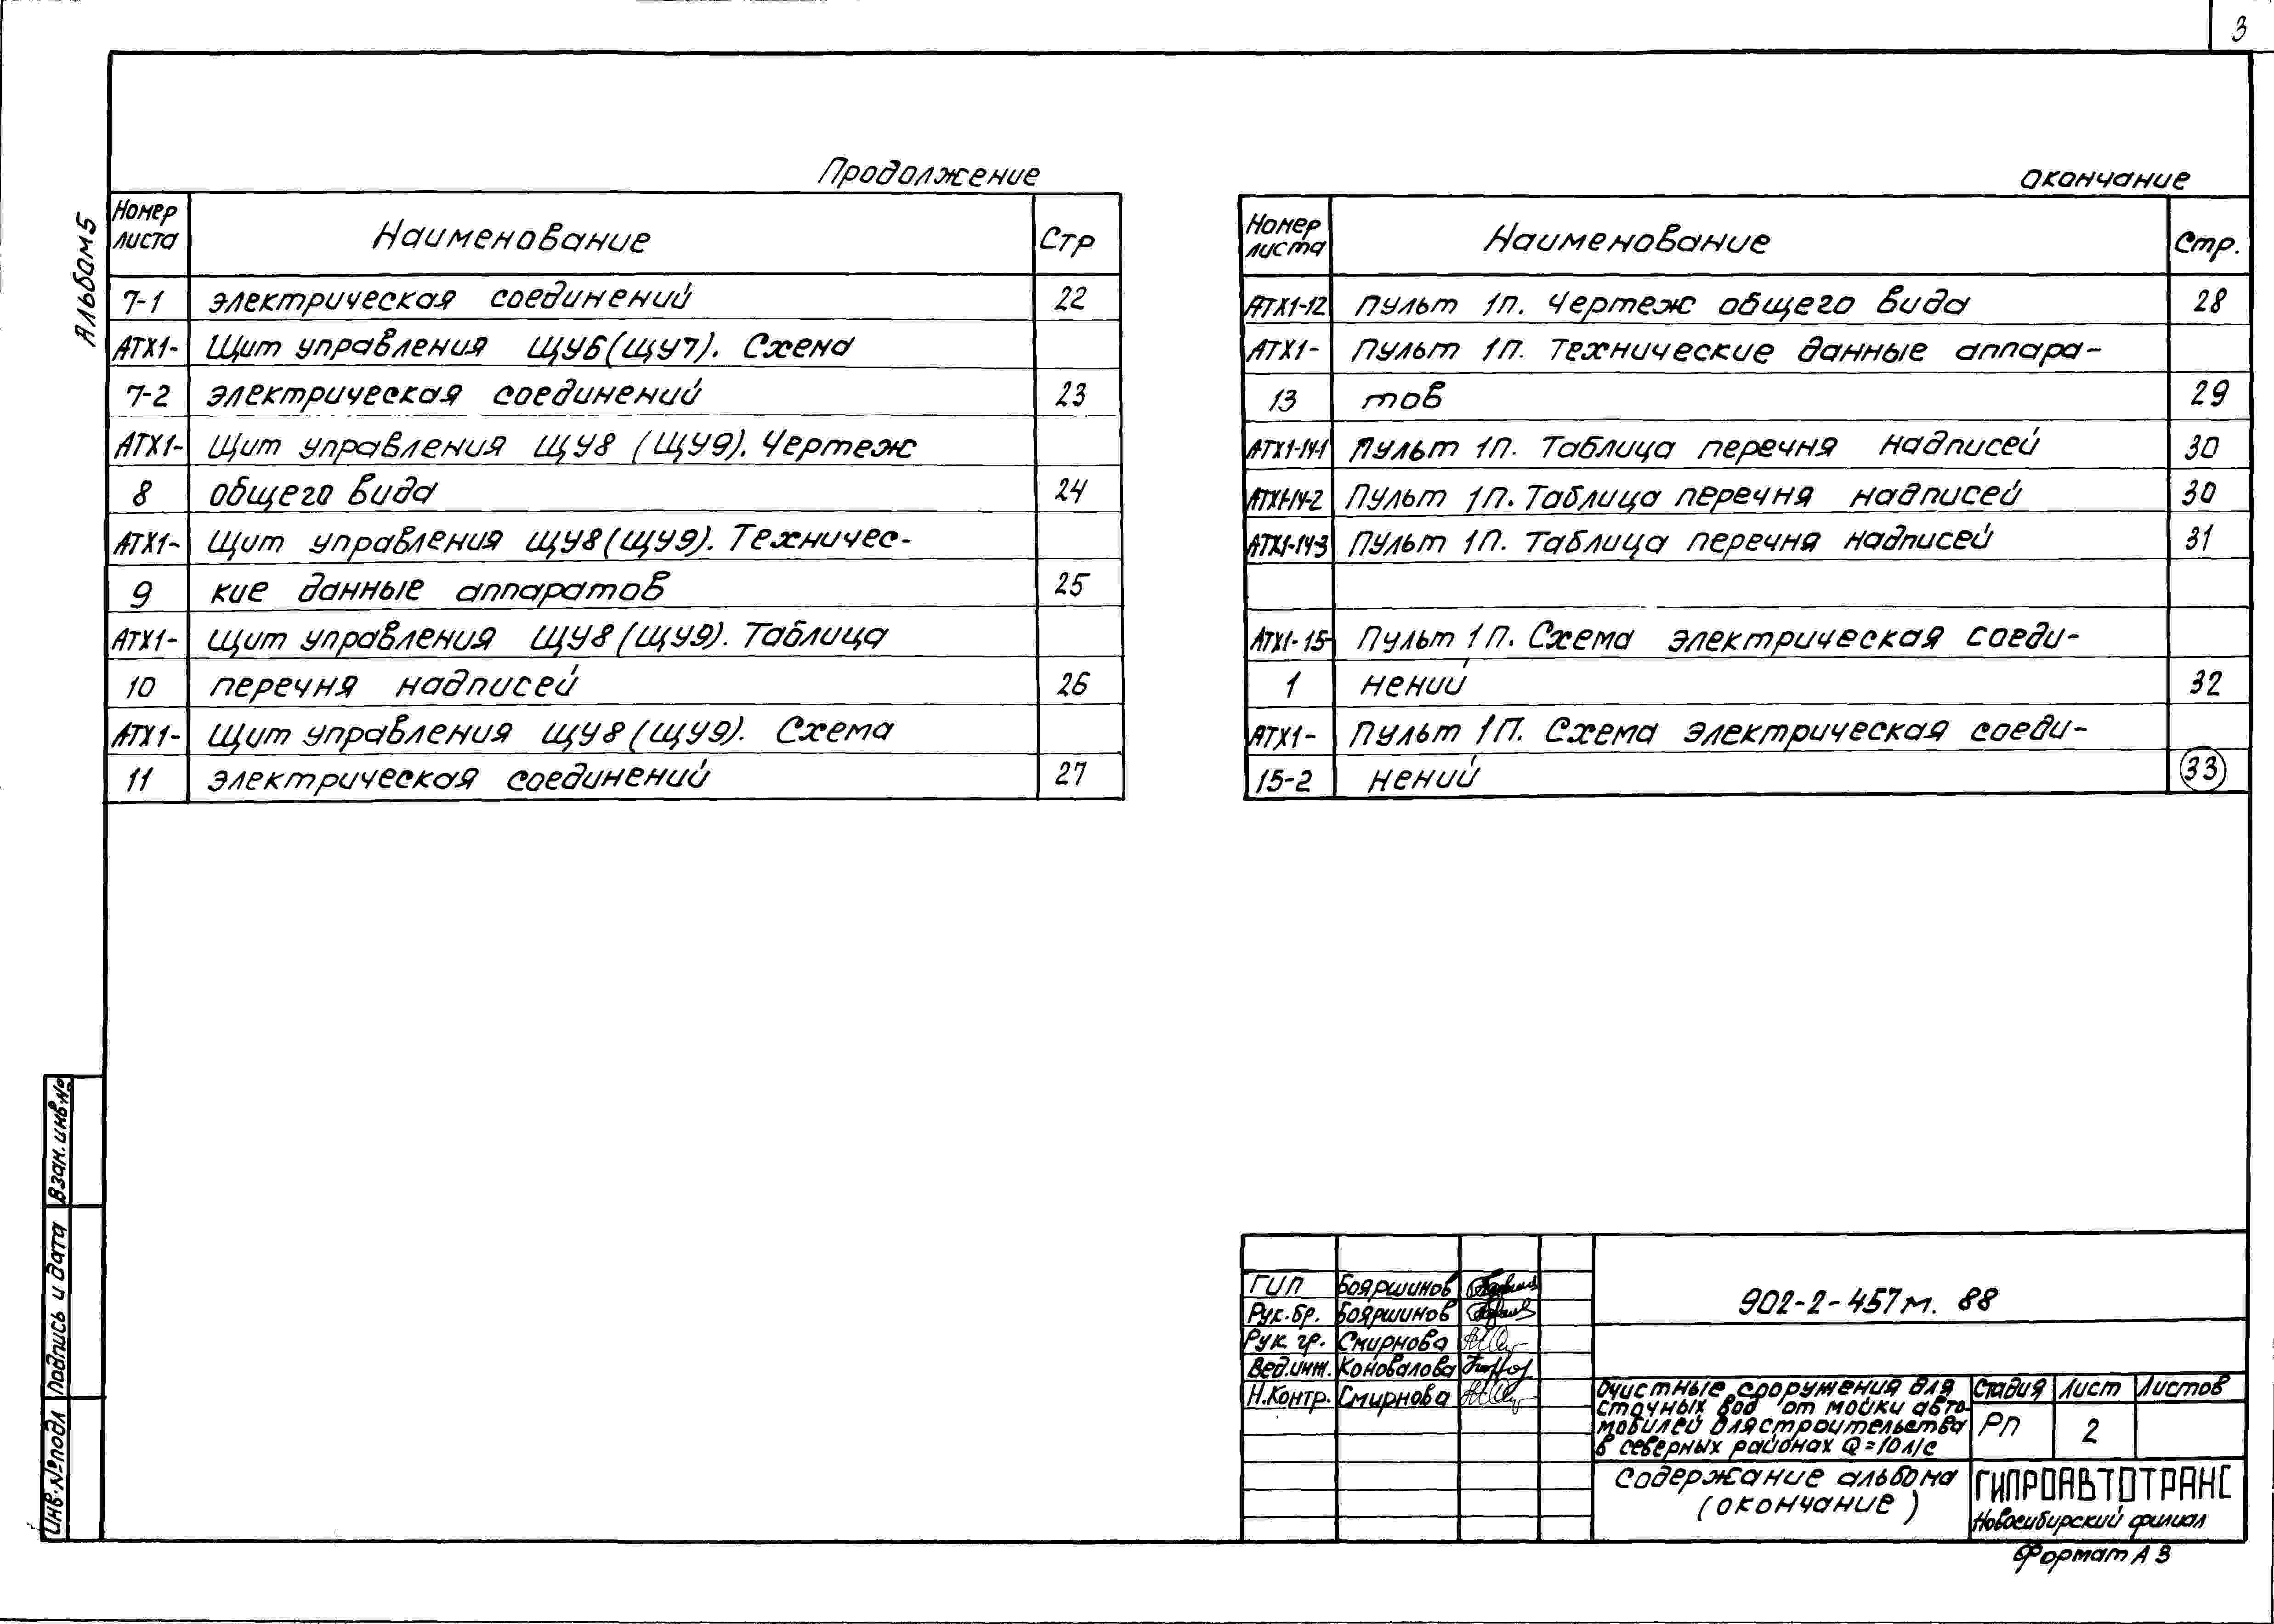 3
Альбом 5
Продолжение
Номер листа Наименование Стр
7-1 электрическая соединений 22
АТХ1- Щит управления ЩУ6(ЩУ7). Схема
7-2 электрическая соединений 23
АТХ1- Щит управления ЩУ8 (ЩУ9). Чертеж
8 общего вида 24
АТХ1- Щит управления ЩУ8(ЩУ9). Техничес-
9 кие данные аппаратов 25
АТХ1- Щит управления ЩУ8(ЩУ9). Таблица
10 перечня надписей 26
АТХ1- Щит управления ЩУ8(ЩУ9). Схема
11 электрическая соединений 27
окончание
Номер листа Наименование Стр.
АТХ1-12 Пульт 1П. Чертеж общего вида 28
АТХ1- Пульт 1П. Технические данные аппара-
13 тов 29
АТХ1-14-1 Пульт 1П. Таблица перечня надписей 30
АТХ1-14-2 Пульт 1П. Таблица перечня надписей 30
АТХ1-14-3 Пульт 1П. Таблица перечня надписей 31
АТХ1-15- Пульт 1П. Схема электрическая соеди-
1 нений 32
АТХ1- Пульт 1П. Схема электрическая соеди-
15-2 нений 33
Взам. инв.№
Подпись и дата
Инв.№подл
ГИП Бояршинов
Рук.бр. Бояршинов
Рук гр. Смирнова
Вед.инж. Коновалова
Н.Контр. Смирнова
902-2-457м. 88
Очистные сооружения для
сточных вод от мойки авто-
мобилей для строительства
в северных районах Q=10л/с
Стадия Лист Листов
РП 2
Содержание альбома
(окончание)
ГИПРОАВТОТРАНС
Новосибирский филиал
Формат А3